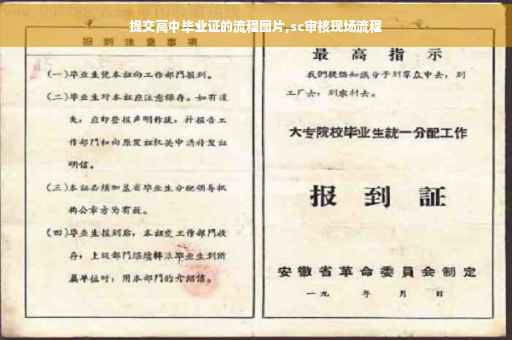 提交高中毕业证的流程图片,sc审核现场流程
报到注意事项
(一)毕业生凭本证向工作部门报到。
(二)毕业生对本证应注意保存。如有遗
失,应即登报声明作废,并报告工
作部门和向原发证机关申请补发证
明信。
(三)本证必须加盖省毕业生分配领导机
构公章方为有效。
(四)毕业生报到后,本证交工作部门收
存;上级部门
毕业生到所
属单位时,用本部门的介绍信。
最高指示
我们提倡知识分子到群众中去,到
工厂去,到农村去。
大专院校毕业生統一分配工作
报到証
安徽省革命委員会制定
一九 年 月 日